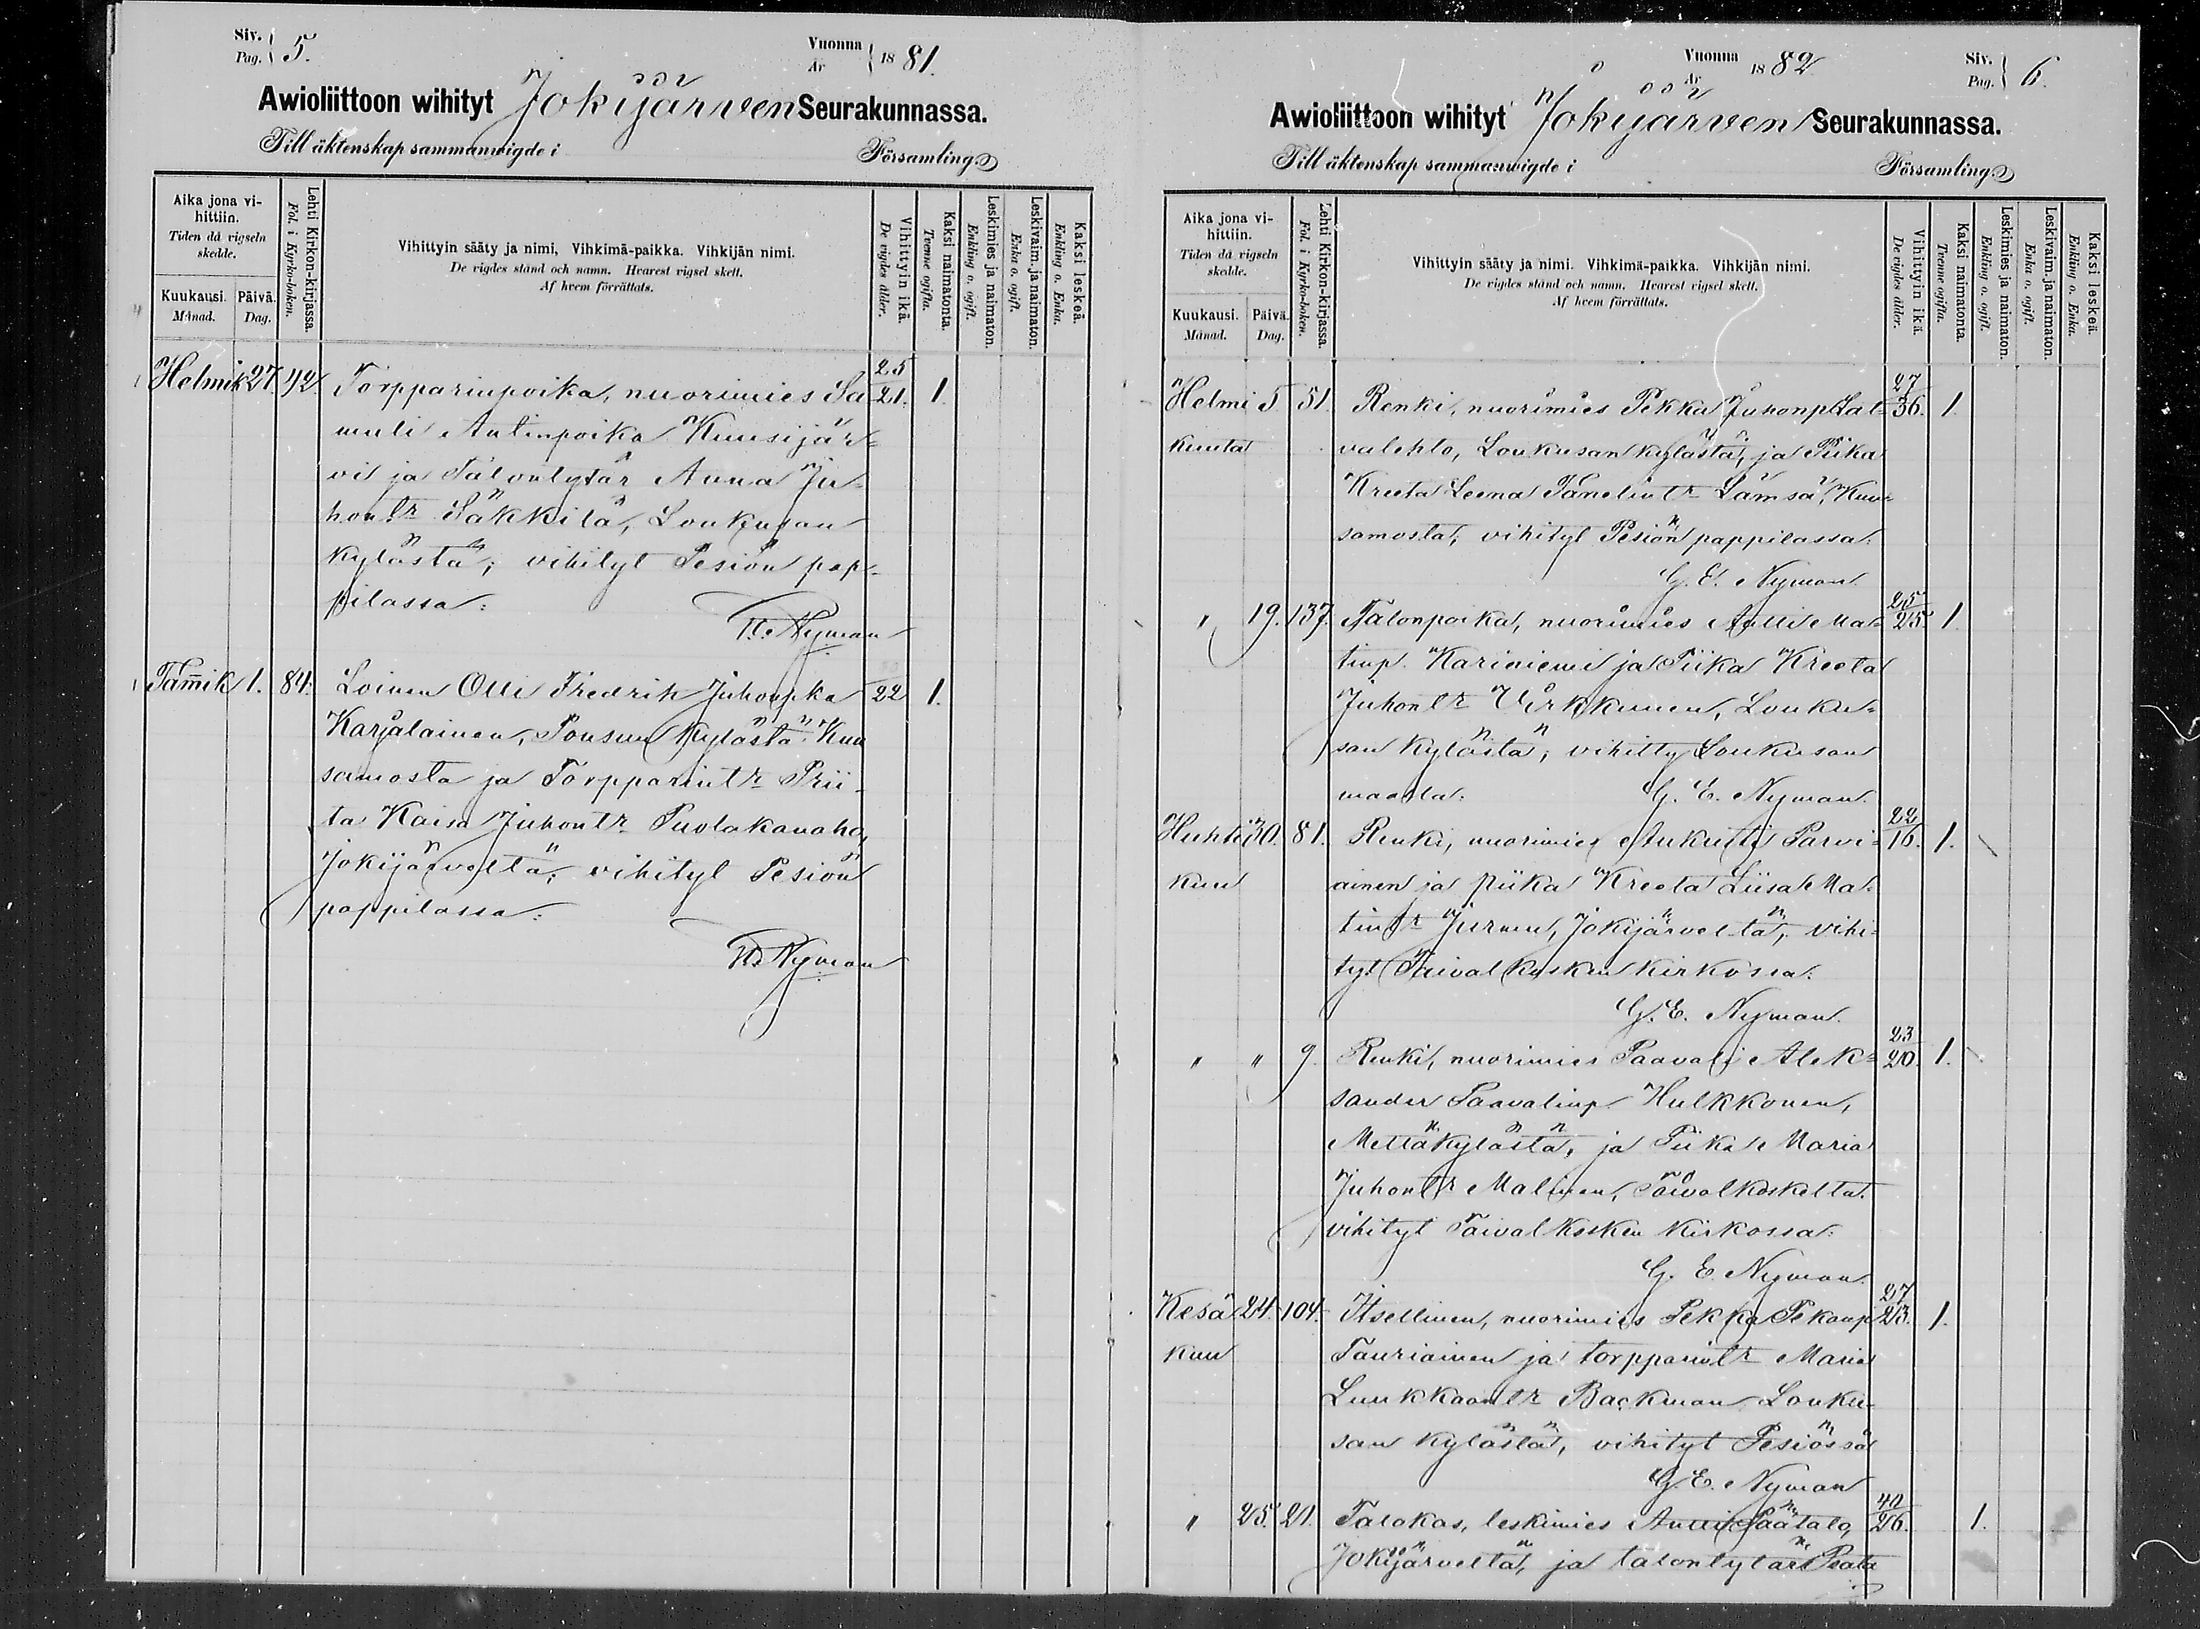 Siv. 5.
Pag.
Vuonna 18 81.
År
Awioliittoon wihityt Jokijärven Seurakunnassa.
Till äktenskap sammanwigde i Församling.
Aika jona vi-
hittiin.
Tiden då vigseln
skedde.
Kuukausi. Päivä.
Månad. Dag.
Lehti Kirkon-kirjassa.
Fol. i Kyrko-boken.
Vihittyin sääty ja nimi, Vihkimä-paikka. Vihkijän nimi.
De vigdes stånd och namn. Hvarest vigsel skett.
Af hvem förrättats.
Vihittyin ikä.
De vigdes ålder.
Kaksi naimatonta.
Tvenne ogifta.
Leskimies ja naimaton.
Enkling o. ogift.
Leskivaim. ja naimaton.
Enka o. ogift.
Kaksi leskeä.
Enkling o. Enka.
25
Helmik 27. 42. Torpparinpoika, nuorimies Sa 21. 1.
muli Antinpoika Kuusijär-
vi ja Talontytär Anna Ju-
hontr Säkkilä, Loukusan
kylästä; vihityt Pesiön pap-
pilassa:
Nyman
Tam̄ik 1. 84. Loinen Olli Fredrik Juhonpka 22 1.
Karjalainen, Posion kylästä Kuu
samosta ja Torpparintr Prii-
ta Kaisa Juhontr Puolakanaho,
Jokijärveltä; vihityt Pesiön
pappilassa:
Nyman
Vuonna 18 82
År
Siv. 6.
Pag.
Awioliittoon wihityt Jokijärven Seurakunnassa.
Till äktenskap sammanwigde i Församling.
Aika jona vi-
hittiin.
Tiden då vigseln
skedde.
Kuukausi. Päivä.
Månad. Dag.
Lehti Kirkon-kirjassa.
Fol. i Kyrko-boken.
Vihittyin sääty ja nimi. Vihkimä-paikka. Vihkijän nimi.
De vigdes stånd och namn. Hvarest vigsel skett.
Af hvem förrättats.
Vihittyin ikä.
De vigdes ålder.
Kaksi naimatonta.
Tvenne ogifta.
Leskimies ja naimaton.
Enkling o. ogift.
Leskivaim. ja naimaton.
Enka o. ogift.
Kaksi leskeä.
Enkling o. Enka.
27
Helmi 5 51. Renki, nuorimies Pekka Juhonp Tal- 36. 1.
kuuta valehto, Loukusan kylästä, ja Piika
Kreeta Leena Tanelintr Lämsä, Kuu-
samosta, vihityt Pesiön pappilassa:
G. E. Nyman.
25
" 19. 137. Talonpoika, nuorimies Antti Ma- 25. 1.
tinp. Kariniemi ja Piika Kreeta
Juhontr Virkkunen, Louku-
san kylästä; vihitty Loukusan
maalla: G. E. Nyman.
22
Huhti 30. 81. Renki, nuorimies Aukusti Parvi- 16. 1.
kuu ainen ja piika Kreeta Liisa Ma-
tintr Jurmu, Jokijärveltä, vihi-
tyt Taivalkosken kirkossa:
G. E. Nyman.
23
" " 9. Renki, nuorimies Paavali Alek- 20. 1.
sander Paavalinp Hulkkonen,
Mettäkylästä, ja Piika Maria
Juhontr Malinen, Taivalkoskelta.
vihityt Taivalkosken kirkossa:
G. E. Nyman.
27
Kesä 24. 104. Itsellinen, nuorimies Pekka Pekanp 23. 1.
kuu Tauriainen ja torpparintr Maria
Luukkaantr Backman Louku-
san kylästä, vihityt Pesiössä
G. E. Nyman
" 25. 21. Talokas, leskimies Antti Säätalo, 26. 1.
Jokijärveltä, ja talontytär Peata